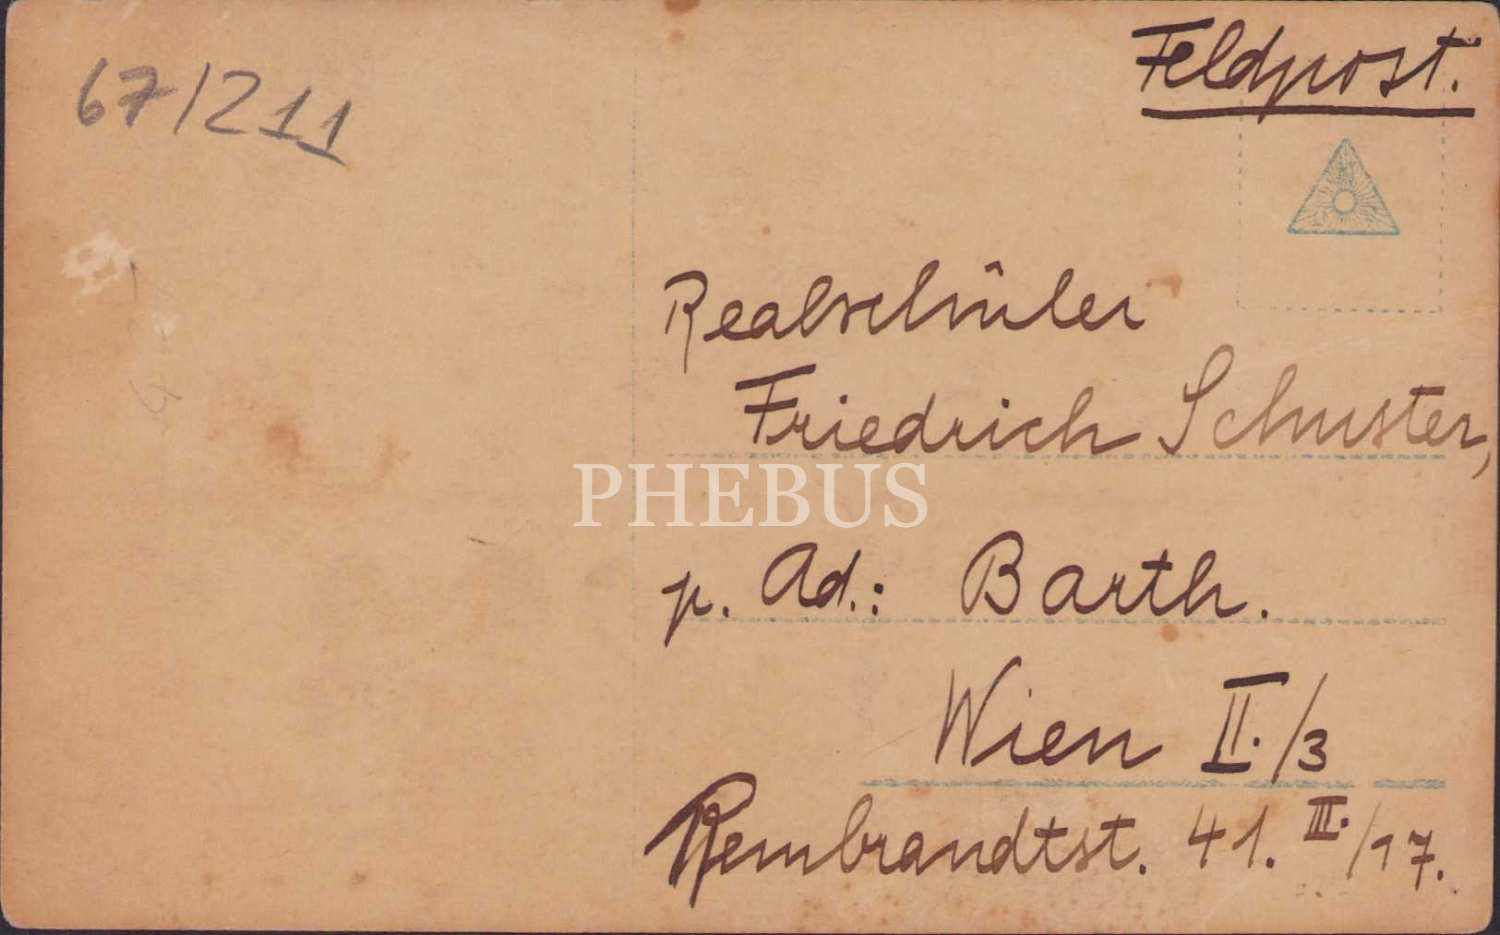 Feldpost.
67/211
Realschüler
Friedrich Schuster,
PHEBUS
p. Ad.: Barth.
Wien II./3
Rembrandtst. 41. III./17.